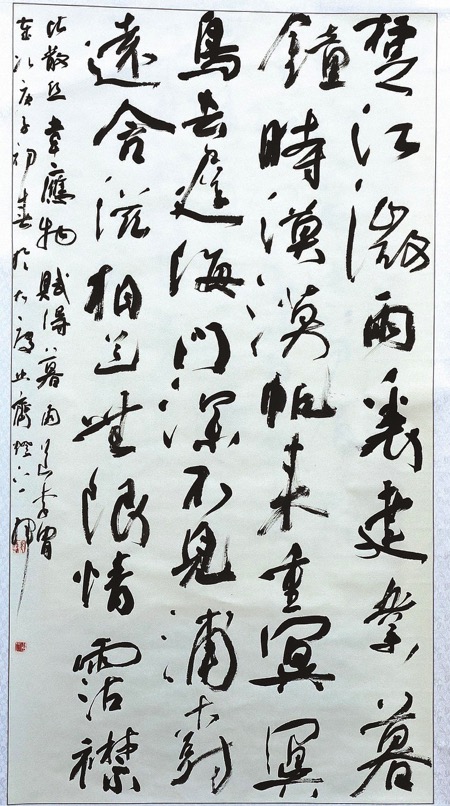 楚江微雨裏建業暮
鐘時漠漠帆来重冥冥
鳥去遲海門深不見浦樹
遠含滋相送無限情霑襟
比散丝韋應物賦得暮雨送李胄
次庚子初春於大齋燈下